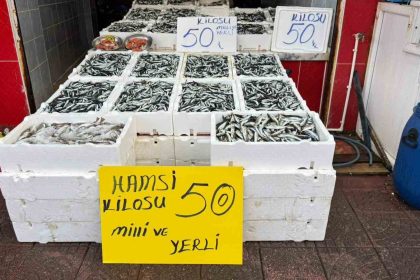 KİLOSU
50 MİLLİ
KİLOSU
50 T/L
HAMSİ
KİLOSU 50
milli ve
YERLİ